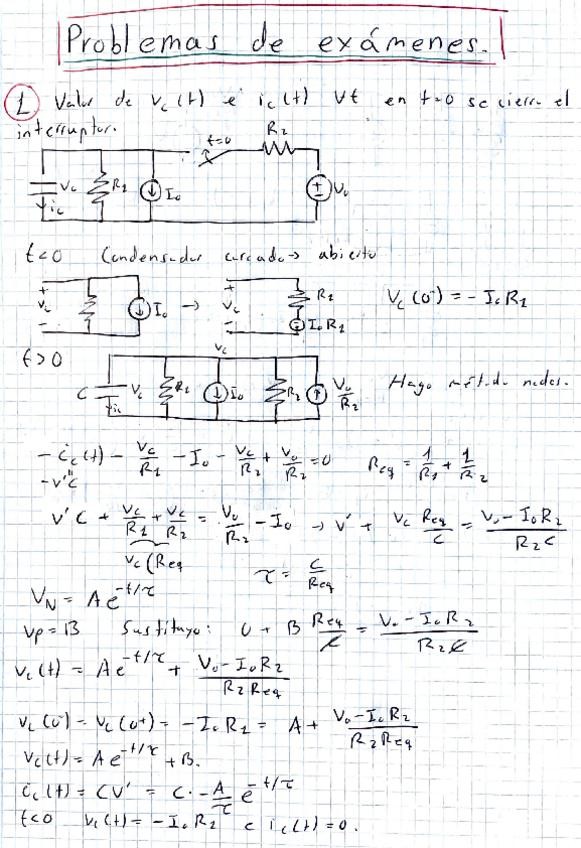 Problemas de exámenes.
1 Valor de Vc(t) e ic(t) ∀t en t=0 se cierra el
interruptor.
t=0 R2
Vc R1 I0 V0
ic
t<0 Condensador cargado → abierto
+ Vc - I0 → + Vc - R1 I0R1 Vc(0-) = - I0R1
t>0
Vc
C Vc R1 I0 R2 V0/R2 Hago método nodos.
ic
- ic(t) - Vc/R1 - I0 - Vc/R2 + V0/R2 = 0 Req = 1/R1 + 1/R2
-v'C
v'C + Vc/R1 + Vc/R2 = V0/R2 - I0 → v' + Vc Req/C = (V0 - I0R2)/(R2C)
Vc(Req τ = C/Req
VN = Ae^(-t/τ)
Vp = B Sustituyo: 0 + B Req/C = (V0 - I0R2)/(R2C)
Vc(t) = Ae^(-t/τ) + (V0 - I0R2)/(R2Req)
Vc(0-) = Vc(0+) = - I0R1 = A + (V0 - I0R2)/(R2Req)
Vc(t) = Ae^(-t/τ) + B.
ic(t) = CV' = C · -A/τ e^(-t/τ)
t<0 Vc(t) = - I0R1 e ic(t) = 0.